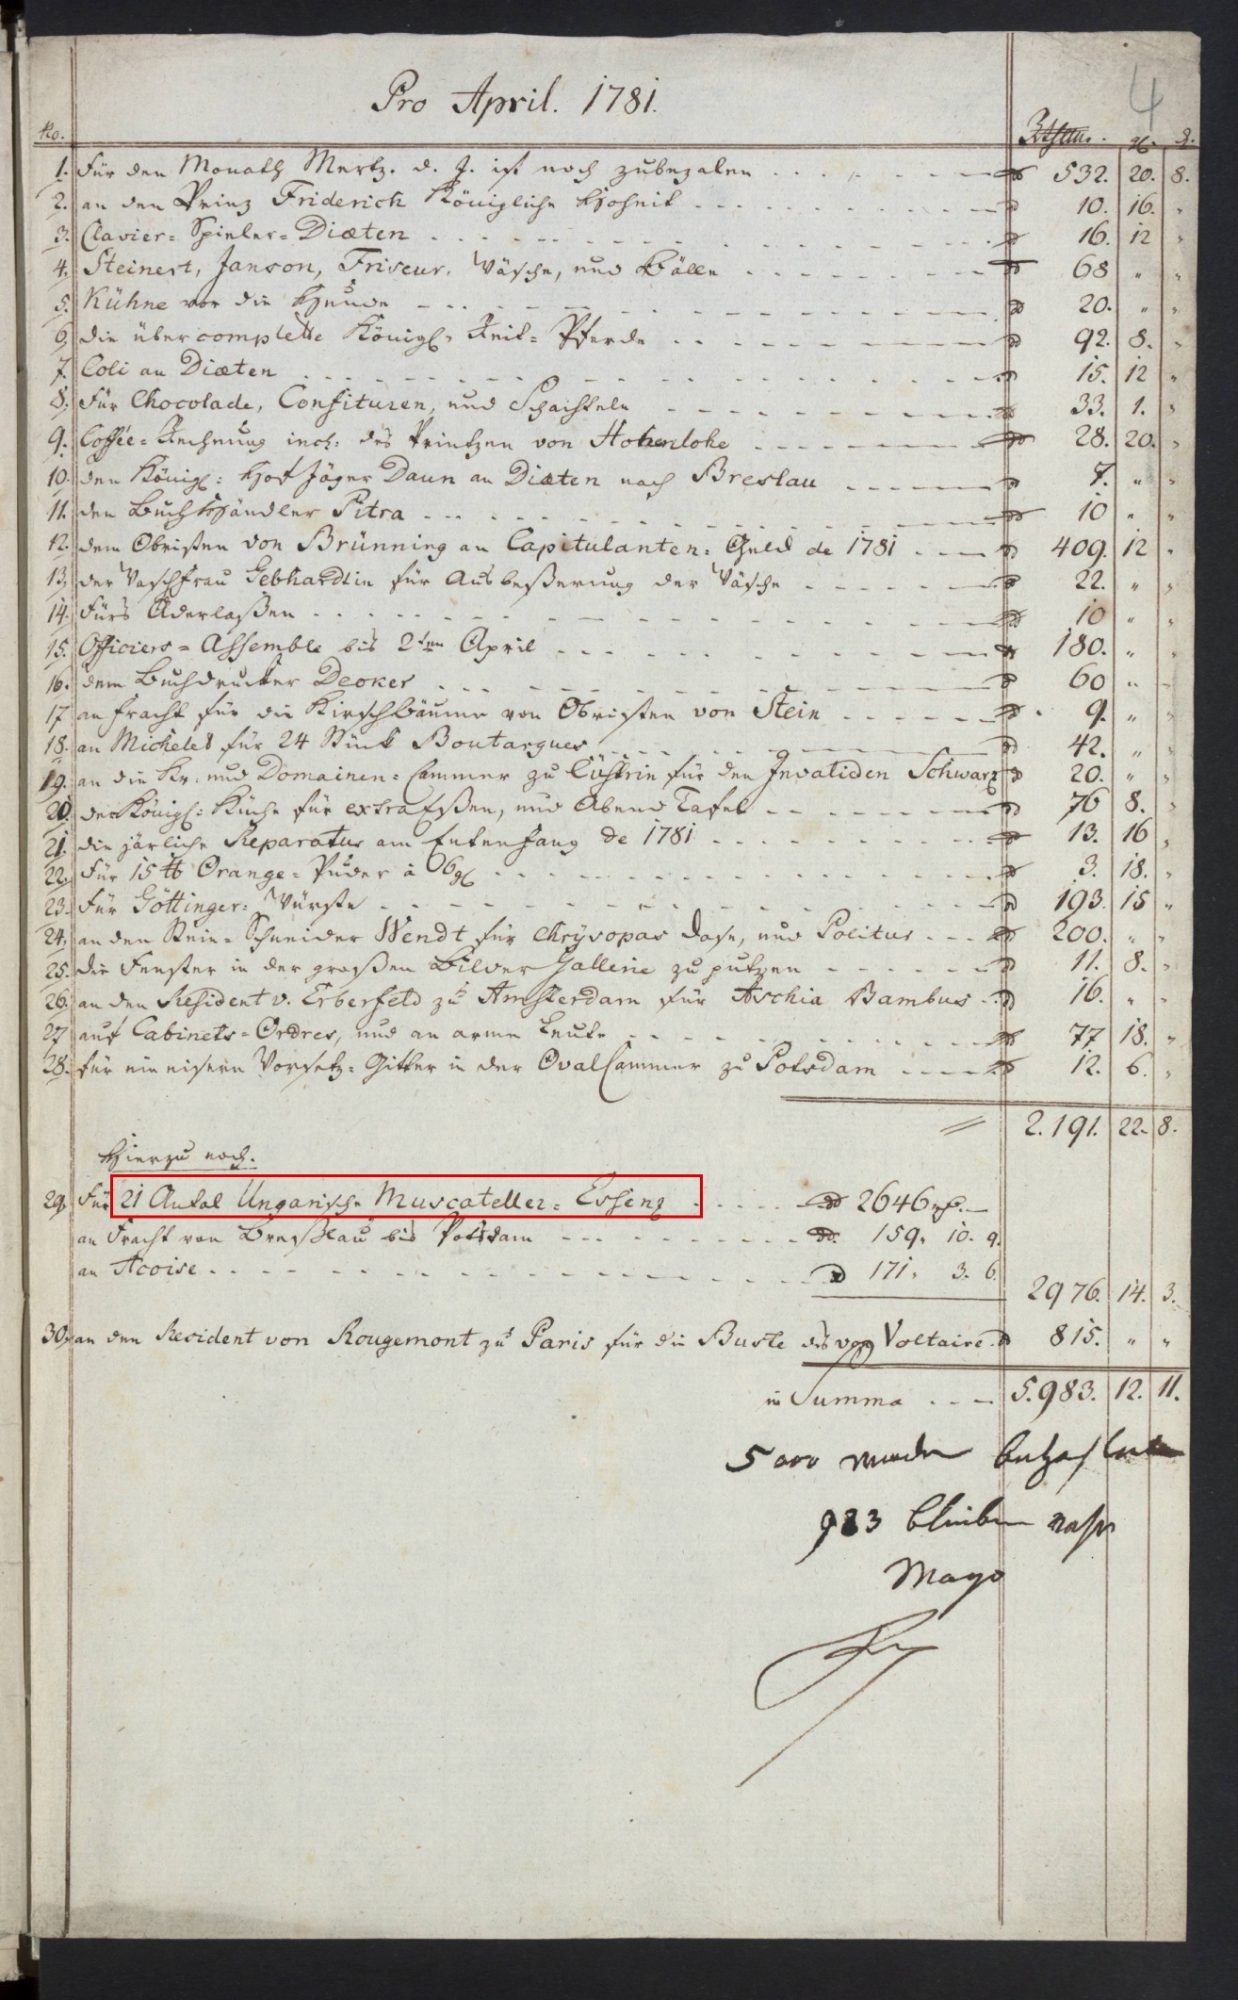 4
Pro April. 1781.
No. Rthlr. gl. d.
1. Für den Monath Mertz. d. J. ist noch zubezalen 532. 20. 8.
2. an den Prinz Friderich Königliche Hoheit 10. 16. "
3. Clavier-Spieler-Diæten 16. 12 "
4. Steinert, Janson, Friseur, Wäsche, und Bälle 68 " "
5. Kühne vor die Hunde 20. " "
6. die übercomplette Königl. Reit-Pferde 92. 8. "
7. Coli an Diæten 15. 12 "
8. Für Chocolade, Confituren, und Schachteln 33. 1. "
9. Coffée-Rechnung incl: des Printzen von Hohenlohe 28. 20. "
10. den Königl: Hof Jäger Daun an Diæten nach Breslau 7. " "
11. den Buchhändler Pitra 10 " "
12. dem Obristen von Brünning an Capitulanten-Geld de 1781 409. 12 "
13. der Waschfrau Gebhardtin für Ausbeßerung der Wäsche 22. " "
14. Fürs Aderlaßen 10 " "
15. Officiers-Assemble bis 2ten April 180. " "
16. dem Buchdrucker Decker 60 " "
17 an Fracht für die Kirschbäume von Obristen von Stein 9. " "
18. an Michelet für 24 Stück Boutargues 42. " "
19. an die Kr. und Domainen-Cammer zu Cüstrin für den Invaliden Schwarz 20. " "
20. der Königl: Küche für extra Eßen, und Abend Tafel 76 8. "
21. die järliche Reparatur am Entenfang de 1781 13. 16 "
22. Für 15 ℔ Orange-Puder à 6 gl 3. 18. "
23. Für Göttinger-Würste 193. 15 "
24. an den Stein-Schneider Wendt für Chrÿsopas Dose, und Politur 200. " "
25. die Fenster in der großen Bilder Gallerie zu putzen 11. 8. "
26. an den Resident v. Erberfeld zu Amsterdam für Aschia Bambus 16. " "
27 auf Cabinets-Ordres, und an arme Leute 77 18. "
28. für ein eisern Vorsetz-Gitter in der Oval Cammer zu Potsdam 12. 6. "
2.191. 22. 8.
Hierzu noch.
29. Für 21 Antal Ungarische Muscateller-Essenz 2646 rl. —
an Fracht von Breßlau bis Potsdam 159. 10. 9.
an Accise 171. 3. 6.
2976. 14. 3.
30. an den Resident von Rougemont zu Paris für die Buste des von Voltaire 815. " "
in Summa 5.983. 12. 11.
5000 werden bezahlet
983 bleiben vohr
Mayo